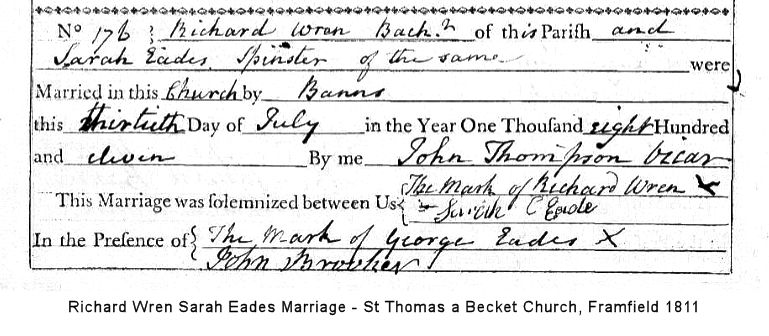 No 176 } Richard Wren Bachr of this Parish and
Sarah Eades Spinster of the same were
Married in this Church by Banns
this thirtieth Day of July in the Year One Thousand eight Hundred
and eleven By me John Thompson Vicar
This Marriage was solemnized between Us { The Mark of Richard Wren X
Sarah Eade
In the Presence of { The Mark of George Eades X
John Brooker
Richard Wren Sarah Eades Marriage - St Thomas a Becket Church, Framfield 1811